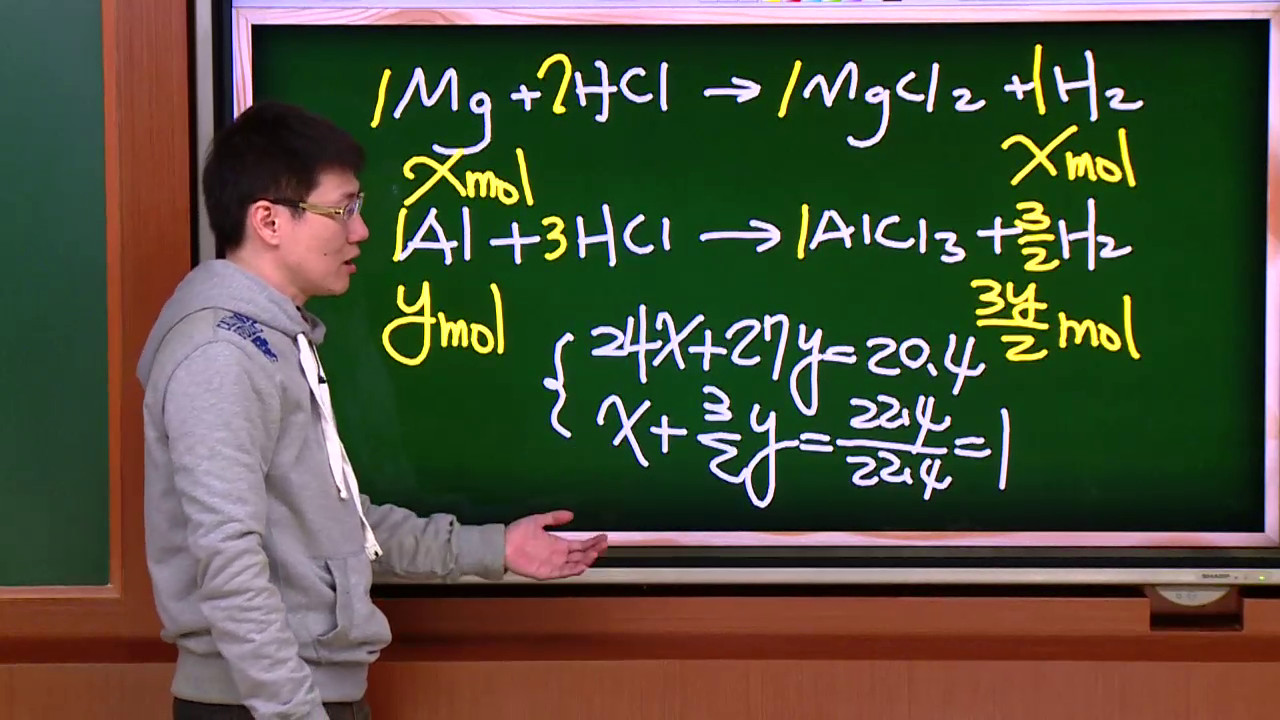 1Mg + 2HCl → 1MgCl₂ + 1H₂
xmol xmol
1Al + 3HCl → 1AlCl₃ + 3/2 H₂
ymol 3y/2 mol
{ 24x+27y=20.4
x + 3/2 y = 22.4/22.4 = 1
SHARP